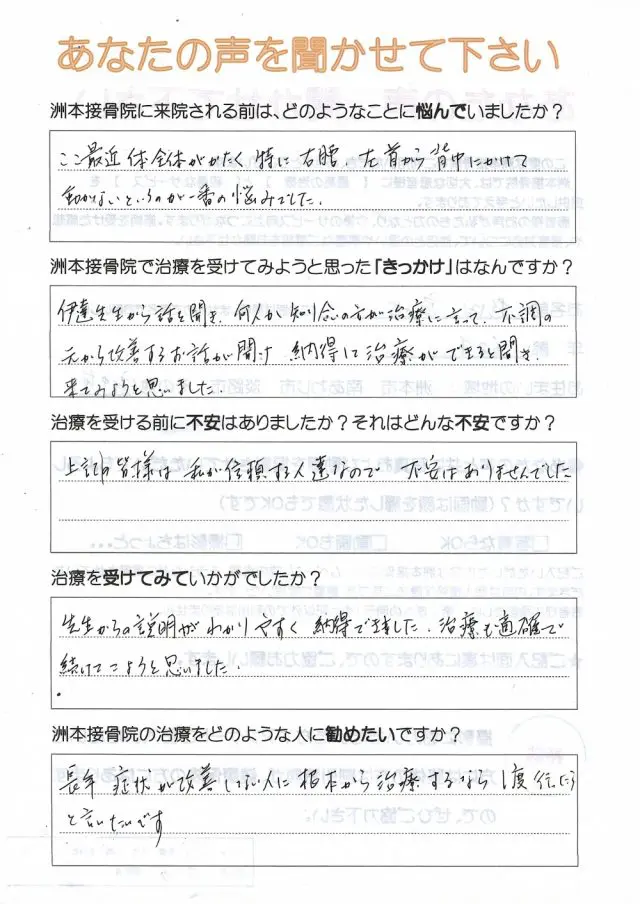 あなたの声を聞かせて下さい
洲本接骨院に来院される前は、どのようなことに悩んでいましたか?
ここ最近 体全体がかたく 特に 右腰、左首から背中にかけて
動かないというのが一番の悩みでした.
洲本接骨院で治療を受けてみようと思った「きっかけ」はなんですか?
伊達先生から話を聞き、何人か知り合いの方が治療に言って、不調の
元から改善するお話が聞け 納得して治療ができると聞き、
来てみようと思いました.
治療を受ける前に不安はありましたか?それはどんな不安ですか?
上記の皆様は 私が信頼する人達なので 不安はありませんでした
治療を受けてみていかがでしたか?
先生からの説明が わかりやすく 納得できました. 治療も適確で
続けてこようと思いました.
洲本接骨院の治療をどのような人に勧めたいですか?
長年 症状が改善しない人に 根本から治療するなら 1度行こう
と言いたいです